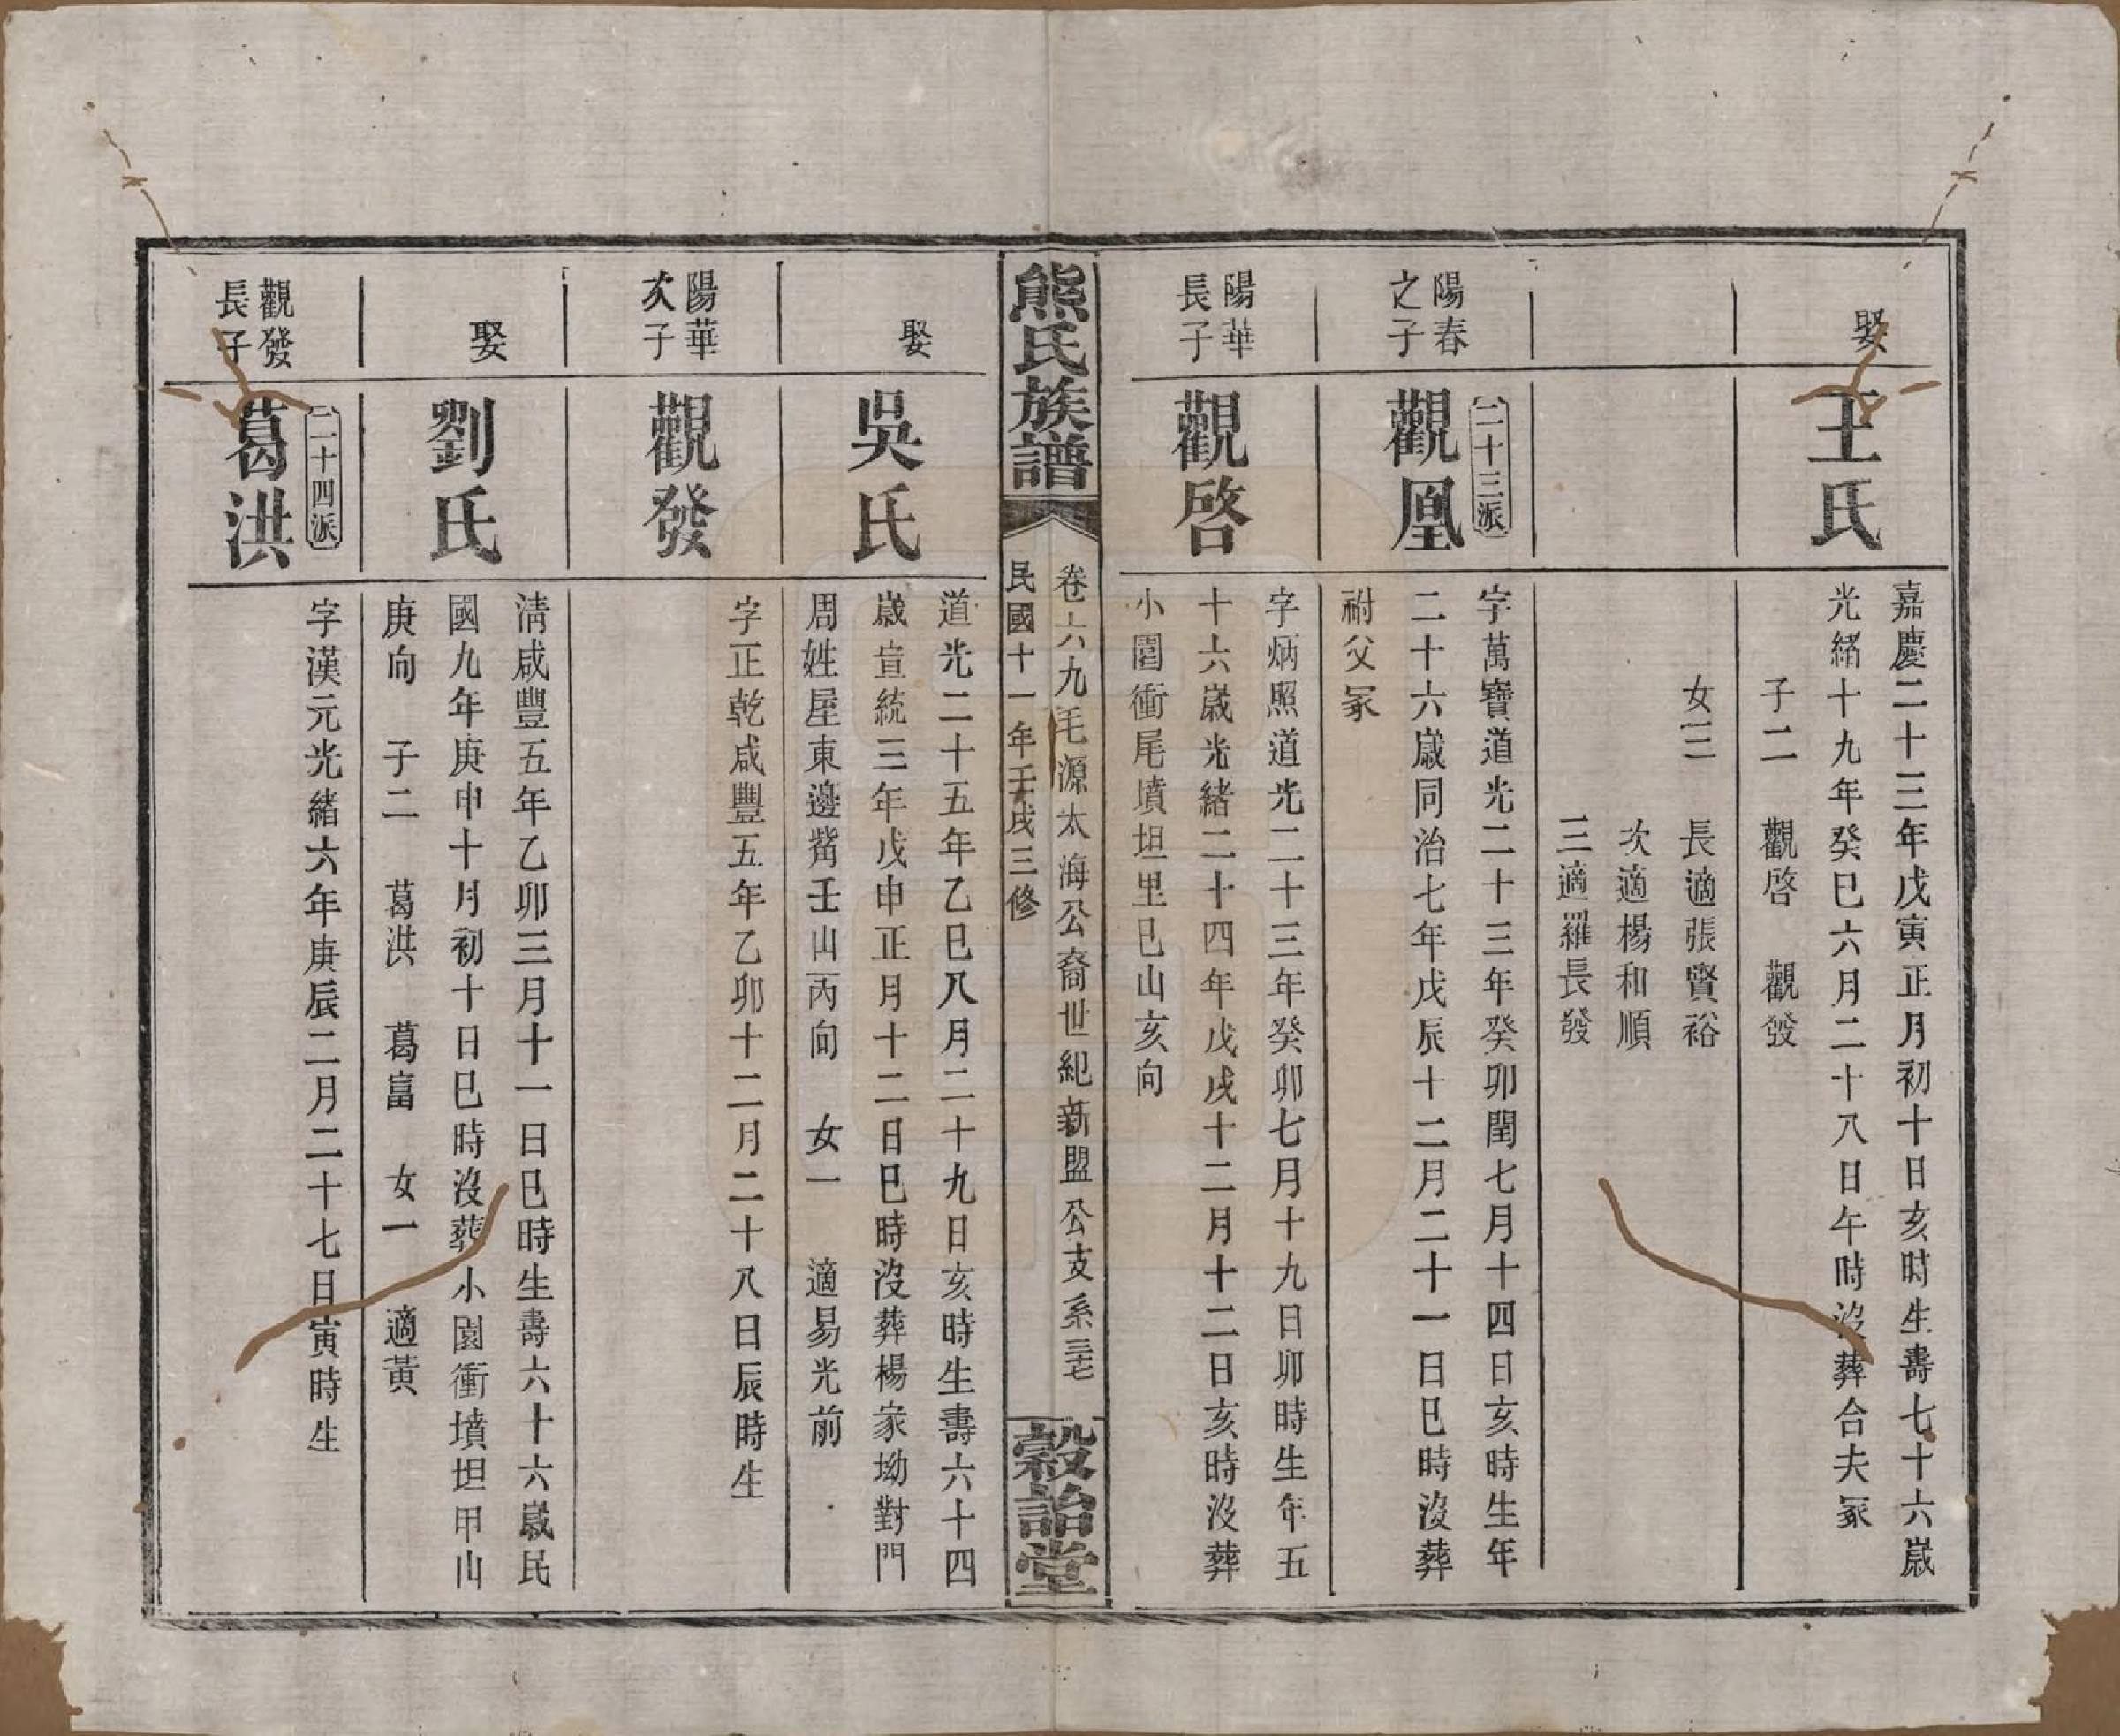 娶
王氏
嘉慶二十三年戊寅正月初十日亥時生壽七十六歲
光緒十九年癸巳六月二十八日午時沒葬合夫冢
子二　觀啓　觀發
女三　長適張賢裕
次適楊和順
三適羅長發
陽春
之子
二十三派
觀凰
字萬寶道光二十三年癸卯閏七月十四日亥時生年
二十六歲同治七年戊辰十二月二十一日巳時沒葬
祔父冢
陽華
長子
觀啓
字炳照道光二十三年癸卯七月十九日卯時生年五
十六歲光緒二十四年戊戌十二月十二日亥時沒葬
小園衝尾墳坦里巳山亥向
熊氏族譜
卷六九毛源太海公裔世紀新盟公支系三七
民國十一年壬戌三修
穀詒堂
娶
吳氏
道光二十五年乙巳八月二十九日亥時生壽六十四
歲宣統三年戊申正月十二日巳時沒葬楊家坳對門
周姓屋東邊觜壬山丙向　女一　適易光前
陽華
次子
觀發
字正乾咸豐五年乙卯十二月二十八日辰時生
娶
劉氏
清咸豐五年乙卯三月十一日巳時生壽六十六歲民
國九年庚申十月初十日巳時沒葬小園衝墳坦甲山
庚向　子二　葛洪　葛富　女一　適黃
觀發
長子
二十四派
葛洪
字漢元光緒六年庚辰二月二十七日寅時生